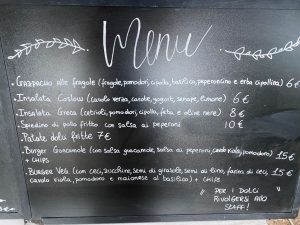 Menu
• Gazpacho alle fragole (fragole, pomodori, cipolla, basilico, peperoncino e erba cipollina) 6 €
• Insalata Coslow (cavolo verza, carote, yogurt, senape, limone) 6 €
• Insalata Greca (cetrioli, pomodori, cipolla, feta e olive nere) 8 €
• Spiedino di pollo fritto con salsa ai peperoni 10 €
• Patate dolci fritte 7 €
• Burger Guacamole (con salsa guacamole, salsa ai peperoni, cavolo viola, pomodoro) 15 €
+ CHIPS
• Burger Veg (con ceci, zucchine, semi di girasole, semi di lino, farina di ceci, 15 €
cavolo viola, pomodoro e maionese al basilico) + CHIPS
" PER I DOLCI
RIVOLGERSI ALLO
STAFF! "